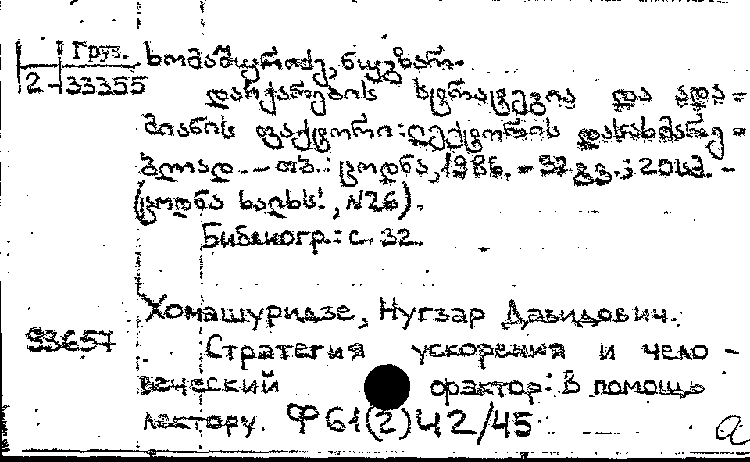 Груз. ხომაშურიძე, ნუგზარ.
2-33355 დაჩქარების სტრატეგია და ადა-
მიანის ფაქტორი: ლექტორის დასახმარე-
ბლად. — თბ.: ცოდნა, 1986. - 32 გვ.; 20 სმ. -
(ცოდნა ხალხს!, N26).
Библиогр.: с. 32.
Хомашуридзе, Нугзар Давидович.
93657 Стратегия ускорения и чело-
веческий фактор: В помощь
лектору. Ф61(2)42/45
a